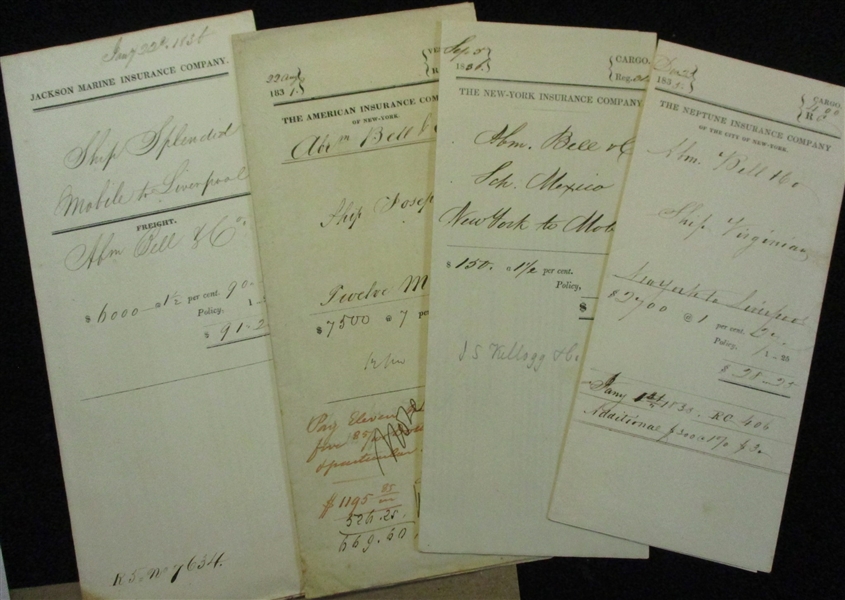 Jany 22d. 1836
JACKSON MARINE INSURANCE COMPANY.
Ship Splendid
Mobile to Liverpool
FREIGHT.
Abm Bell & Co.
$ 6000 - @ 1 1/2 per cent. 90.
Policy, 1-2
$ 91.2
R5. No 7634.
22 Aug
183
THE AMERICAN INSURANCE COM
OF NEW-YORK.
Abm Bell & C
Ship Josep
Twelve M
$ 7500 @ 7 pe
Pay Eleven
five 85
$ 1195 85
526.25.
669.60
Sep. 5
183
CARGO.
Reg.
THE NEW-YORK INSURANCE COMPANY
Abm. Bell & C
Sch. Mexico
New York to Mob
$ 150. @ 1 1/2 per cent.
Policy,
$
J. S Kellogg & Co
183
CARGO.
R C
THE NEPTUNE INSURANCE COMPANY
OF THE CITY OF NEW-YORK.
Abm. Bell & Co
Ship Virginian
New York to Liverpoo
$ 2700 @ 1 per cent. 27.
Policy, 1.25
$ 28-25
Jany 1st 183 RC 406
Additional $300 @ 1% $3